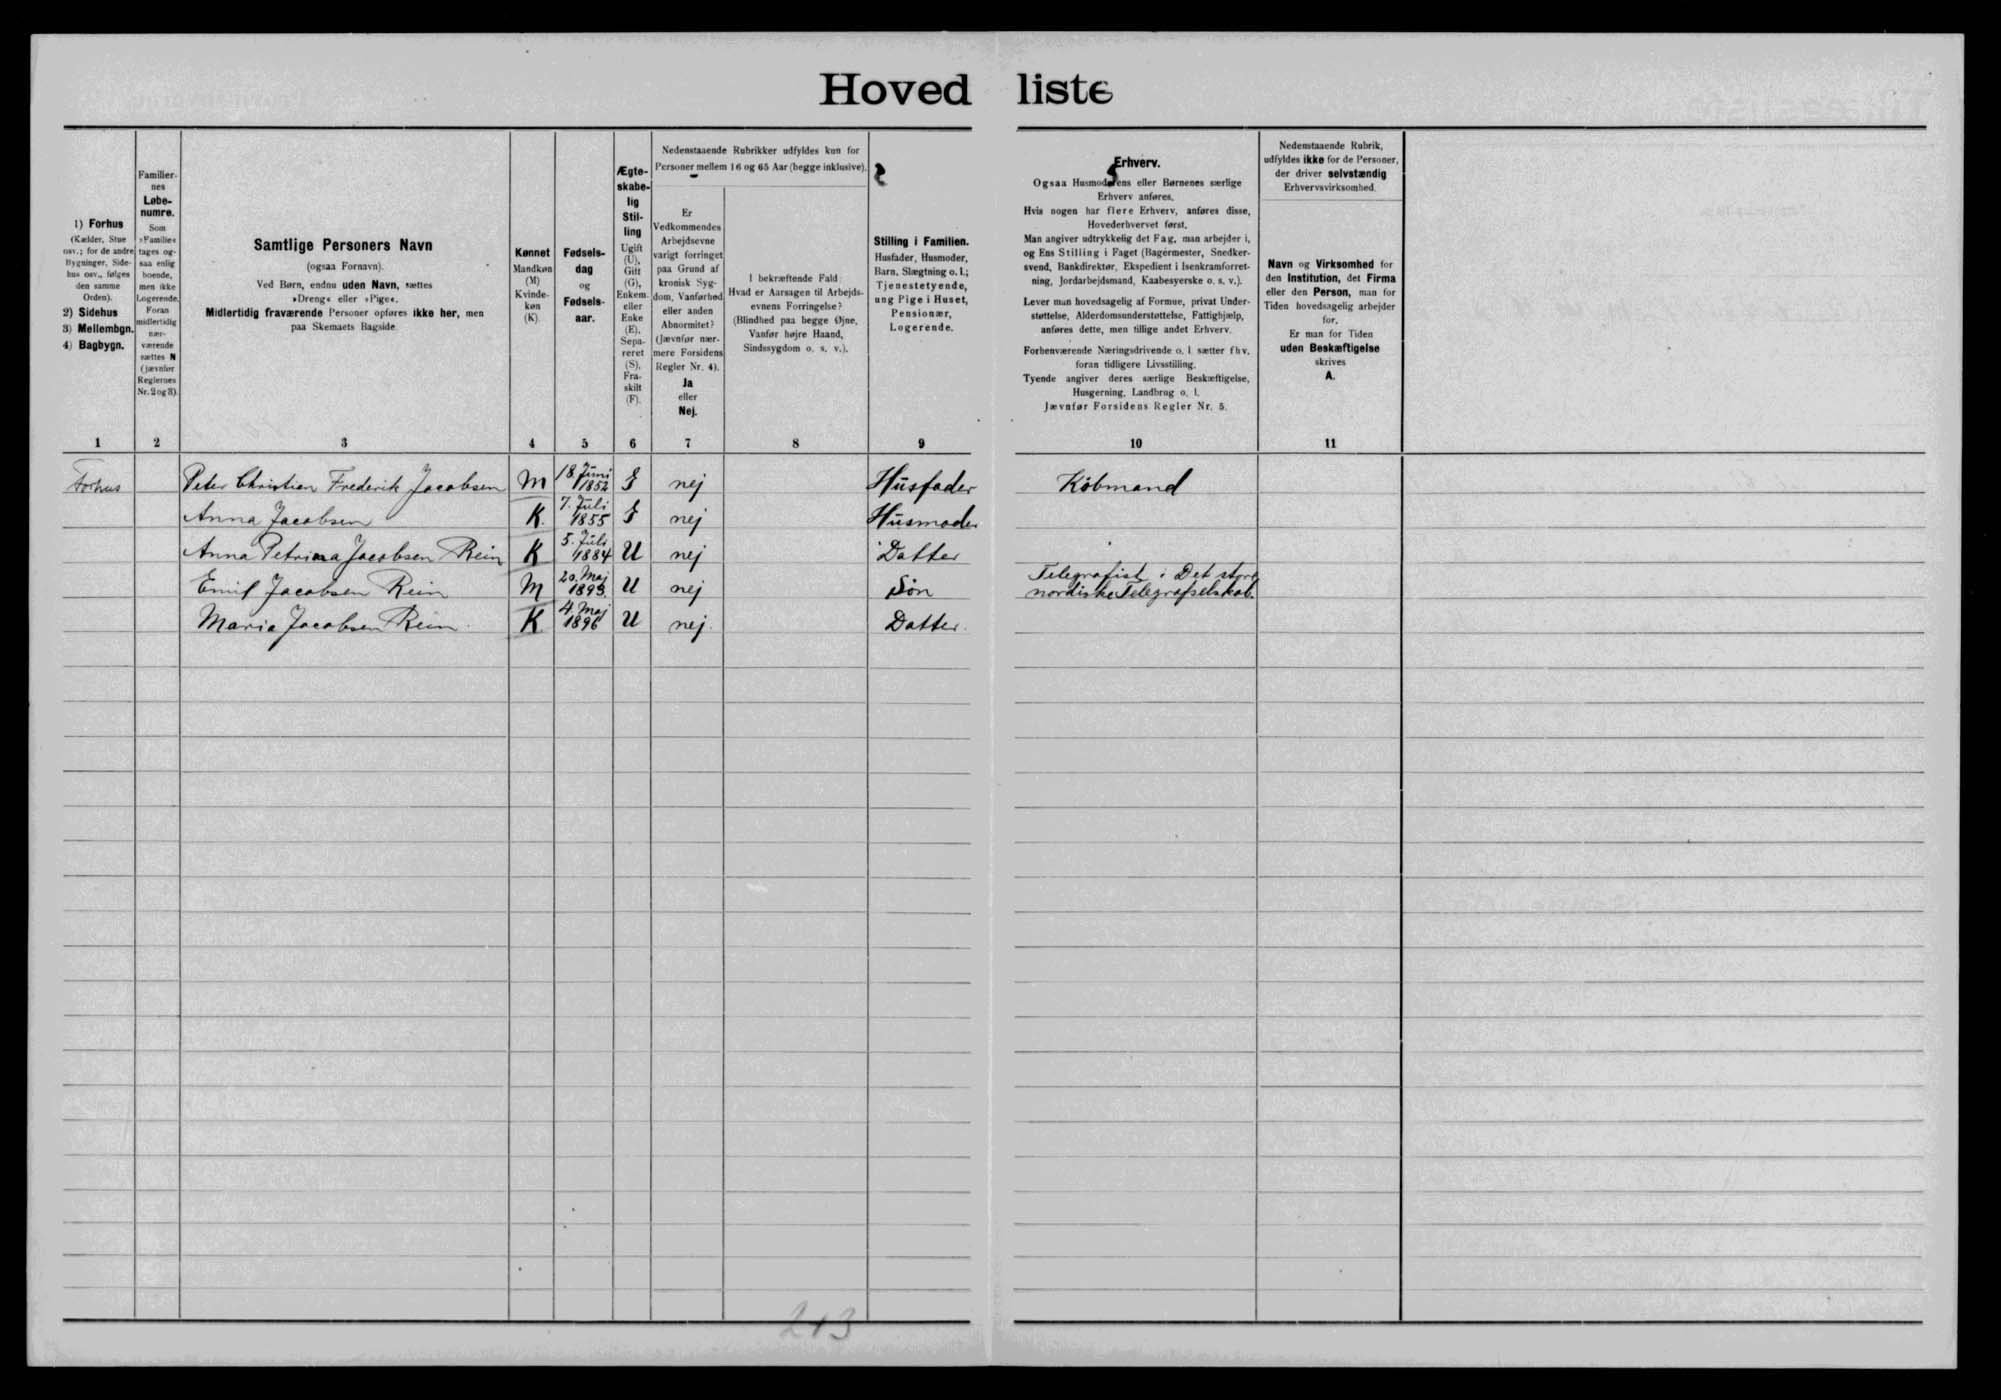 Hovedliste
1) Forhus
(Kælder, Stue
osv.; for de andre
Bygninger, Side-
hus osv., følges
den samme
Orden).
2) Sidehus
3) Mellembgn.
4) Bagbygn.
Familier-
nes
Løbe-
numre.
Som
»Familie«
tages og-
saa enlig
boende,
men ikke
Logerende.
Foran
midlertidig
nær-
værende
sættes N
(jævnfør
Reglernes
Nr. 2 og 3).
Samtlige Personers Navn
(ogsaa Fornavn).
Ved Børn, endnu uden Navn, sættes
»Dreng« eller »Pige«.
Midlertidig fraværende Personer opføres ikke her, men
paa Skemaets Bagside.
Kønnet
Mandkøn
(M)
Kvinde-
køn
(K).
Fødsels-
dag
og
Fødsels-
aar.
Ægte-
skabe-
lig
Stil-
ling
Ugift
(U),
Gift
(G),
Enkem.
eller
Enke
(E),
Sepa-
reret
(S),
Fra-
skilt
(F).
Nedenstaaende Rubrikker udfyldes kun for
Personer mellem 16 og 65 Aar (begge inklusive).
Er
Vedkommendes
Arbejdsevne
varigt forringet
paa Grund af
kronisk Syg-
dom, Vanførhed
eller anden
Abnormitet?
(Jævnfør nær-
mere Forsidens
Regler Nr. 4).
Ja
eller
Nej.
I bekræftende Fald:
Hvad er Aarsagen til Arbejds-
evnens Forringelse?
(Blindhed paa begge Øjne,
Vanfør højre Haand,
Sindssygdom o. s. v.).
Stilling i Familien.
Husfader, Husmoder,
Barn, Slægtning o. l.;
Tjenestetyende,
ung Pige i Huset,
Pensionær,
Logerende.
Erhverv.
Ogsaa Husmoderens eller Børnenes særlige
Erhverv anføres.
Hvis nogen har flere Erhverv, anføres disse,
Hovederhvervet først.
Man angiver udtrykkelig det Fag, man arbejder i,
og Ens Stilling i Faget (Bagermester, Snedker-
svend, Bankdirektør, Ekspedient i Isenkramforret-
ning, Jordarbejdsmand, Kaabesyerske o. s. v.).
Lever man hovedsagelig af Formue, privat Under-
støttelse, Alderdomsunderstøttelse, Fattighjælp,
anføres dette, men tillige andet Erhverv.
Forhenværende Næringsdrivende o. l. sætter fhv.
foran tidligere Livsstilling.
Tyende angiver deres særlige Beskæftigelse,
Husgerning, Landbrug o. l.
Jævnfør Forsidens Regler Nr. 5.
Nedenstaaende Rubrik,
udfyldes ikke for de Personer,
der driver selvstændig
Erhvervsvirksomhed.
Navn og Virksomhed for
den Institution, det Firma
eller den Person, man for
Tiden hovedsagelig arbejder
for.
Er man for Tiden
uden Beskæftigelse
skrives
A.
1 2 3 4 5 6 7 8 9 10 11
Forhus Peter Christian Frederik Jacobsen M 18 Juni 1852 G nej Husfader Købmand
Anna Jacobsen K. 7. Juli 1855 G nej Husmoder
Anna Petrina Jacobsen Rein K 5. Juli 1884 U nej Datter
Emil Jacobsen Rein M 20. Maj 1893. U nej Søn Telegrafist i Det store
nordiske Telegrafselskab.
Maria Jacobsen Rein. K 4. Maj 1896 U nej. Datter.
2+3